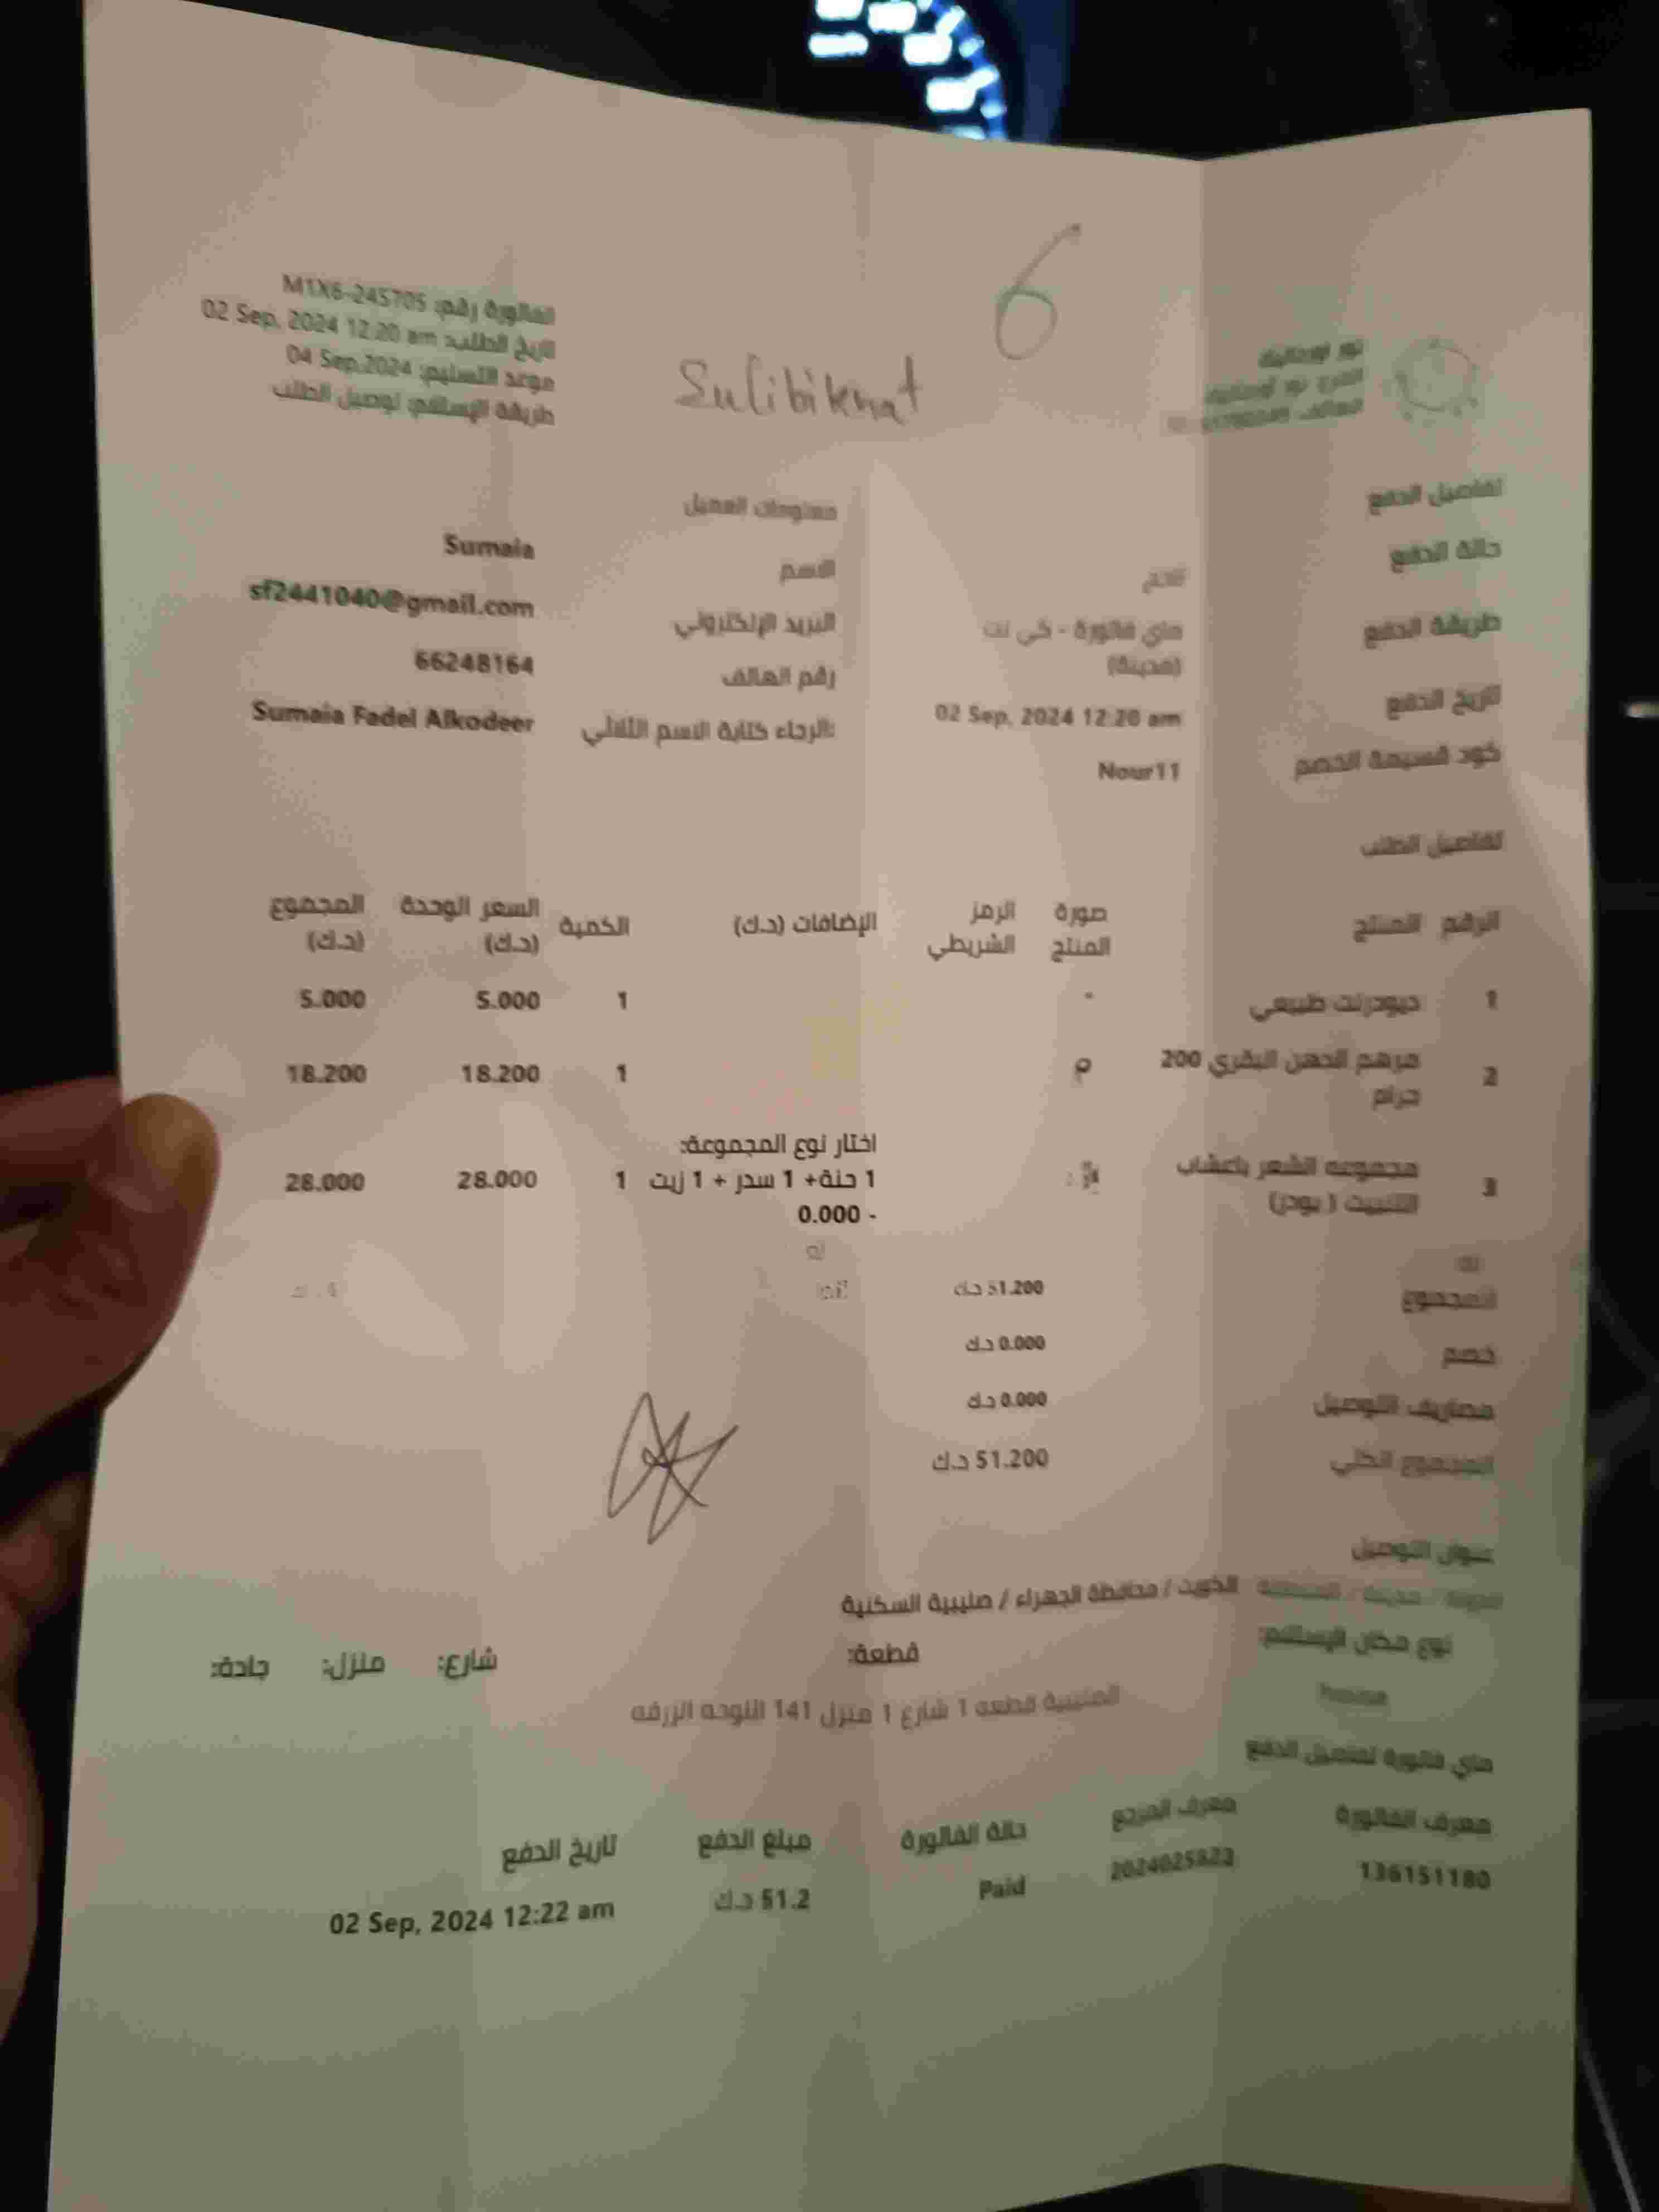 6
Sulibikhat
نور اورجانيك
الفرع: نور اورجانيك
الفاتورة رقم: M1X6-245705
تاريخ الطلب: 02 Sep, 2024 12:20 am
موعد التسليم: 04 Sep,2024
طريقة الإستلام: توصيل الطلب
تفاصيل الدفع
حالة الدفع
طريقة الدفع ماي فاتورة - كي نت (مدينة)
تاريخ الدفع 02 Sep, 2024 12:20 am
كود قسيمة الخصم Nour11
معلومات العميل
الاسم Sumaia
البريد الإلكتروني sf2441040@gmail.com
رقم الهاتف 66248164
الرجاء كتابة الاسم الثلاثي: Sumaia Fadel Alkodeer
تفاصيل الطلب
الرقم المنتج صورة المنتج الرمز الشريطي الإضافات (د.ك) الكمية السعر الوحدة (د.ك) المجموع (د.ك)
1 ديودرنت طبيعي - 1 5.000 5.000
2 مرهم الدهن البقري 200 جرام 1 18.200 18.200
3 مجموعه الشعر باعشاب التنبيت ( بودر) اختار نوع المجموعة: 1 حنة+ 1 سدر + 1 زيت - 0.000 1 28.000 28.000
المجموع 51.200 د.ك
خصم 0.000 د.ك
مصاريف التوصيل 0.000 د.ك
المجموع الكلي 51.200 د.ك
عنوان التوصيل
الدولة / مدينة / المنطقة الكويت / محافظة الجهراء / صليبية السكنية
نوع مكان الإستلام: قطعة: شارع: منزل: جادة:
house الصليبية قطعه 1 شارع 1 منزل 141 اللوحه الزرقه
ماي فاتورة تفاصيل الدفع
معرف الفاتورة معرف المرجع حالة الفاتورة مبلغ الدفع تاريخ الدفع
136151180 Paid 51.2 د.ك 02 Sep, 2024 12:22 am